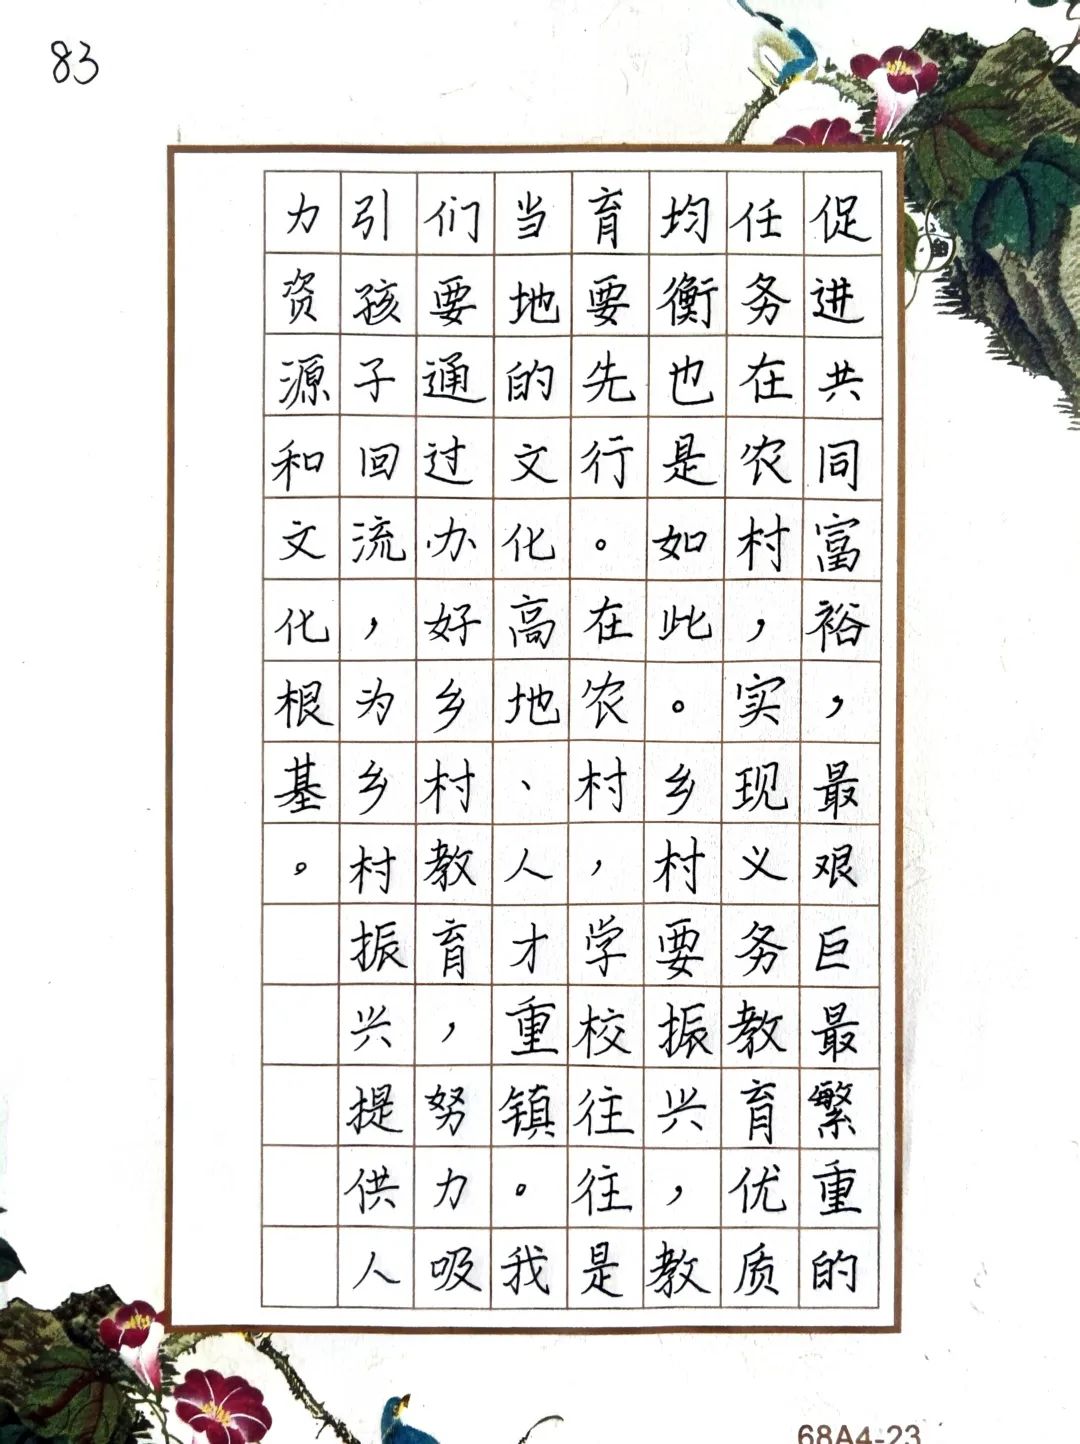 83
促进共同富裕，最艰巨最繁重的
任务在农村，实现义务教育优质
均衡也是如此。乡村要振兴，教
育要先行。在农村，学校往往是
当地的文化高地、人才重镇。我
们要通过办好乡村教育，努力吸
引孩子回流，为乡村振兴提供人
力资源和文化根基。
68A4-23